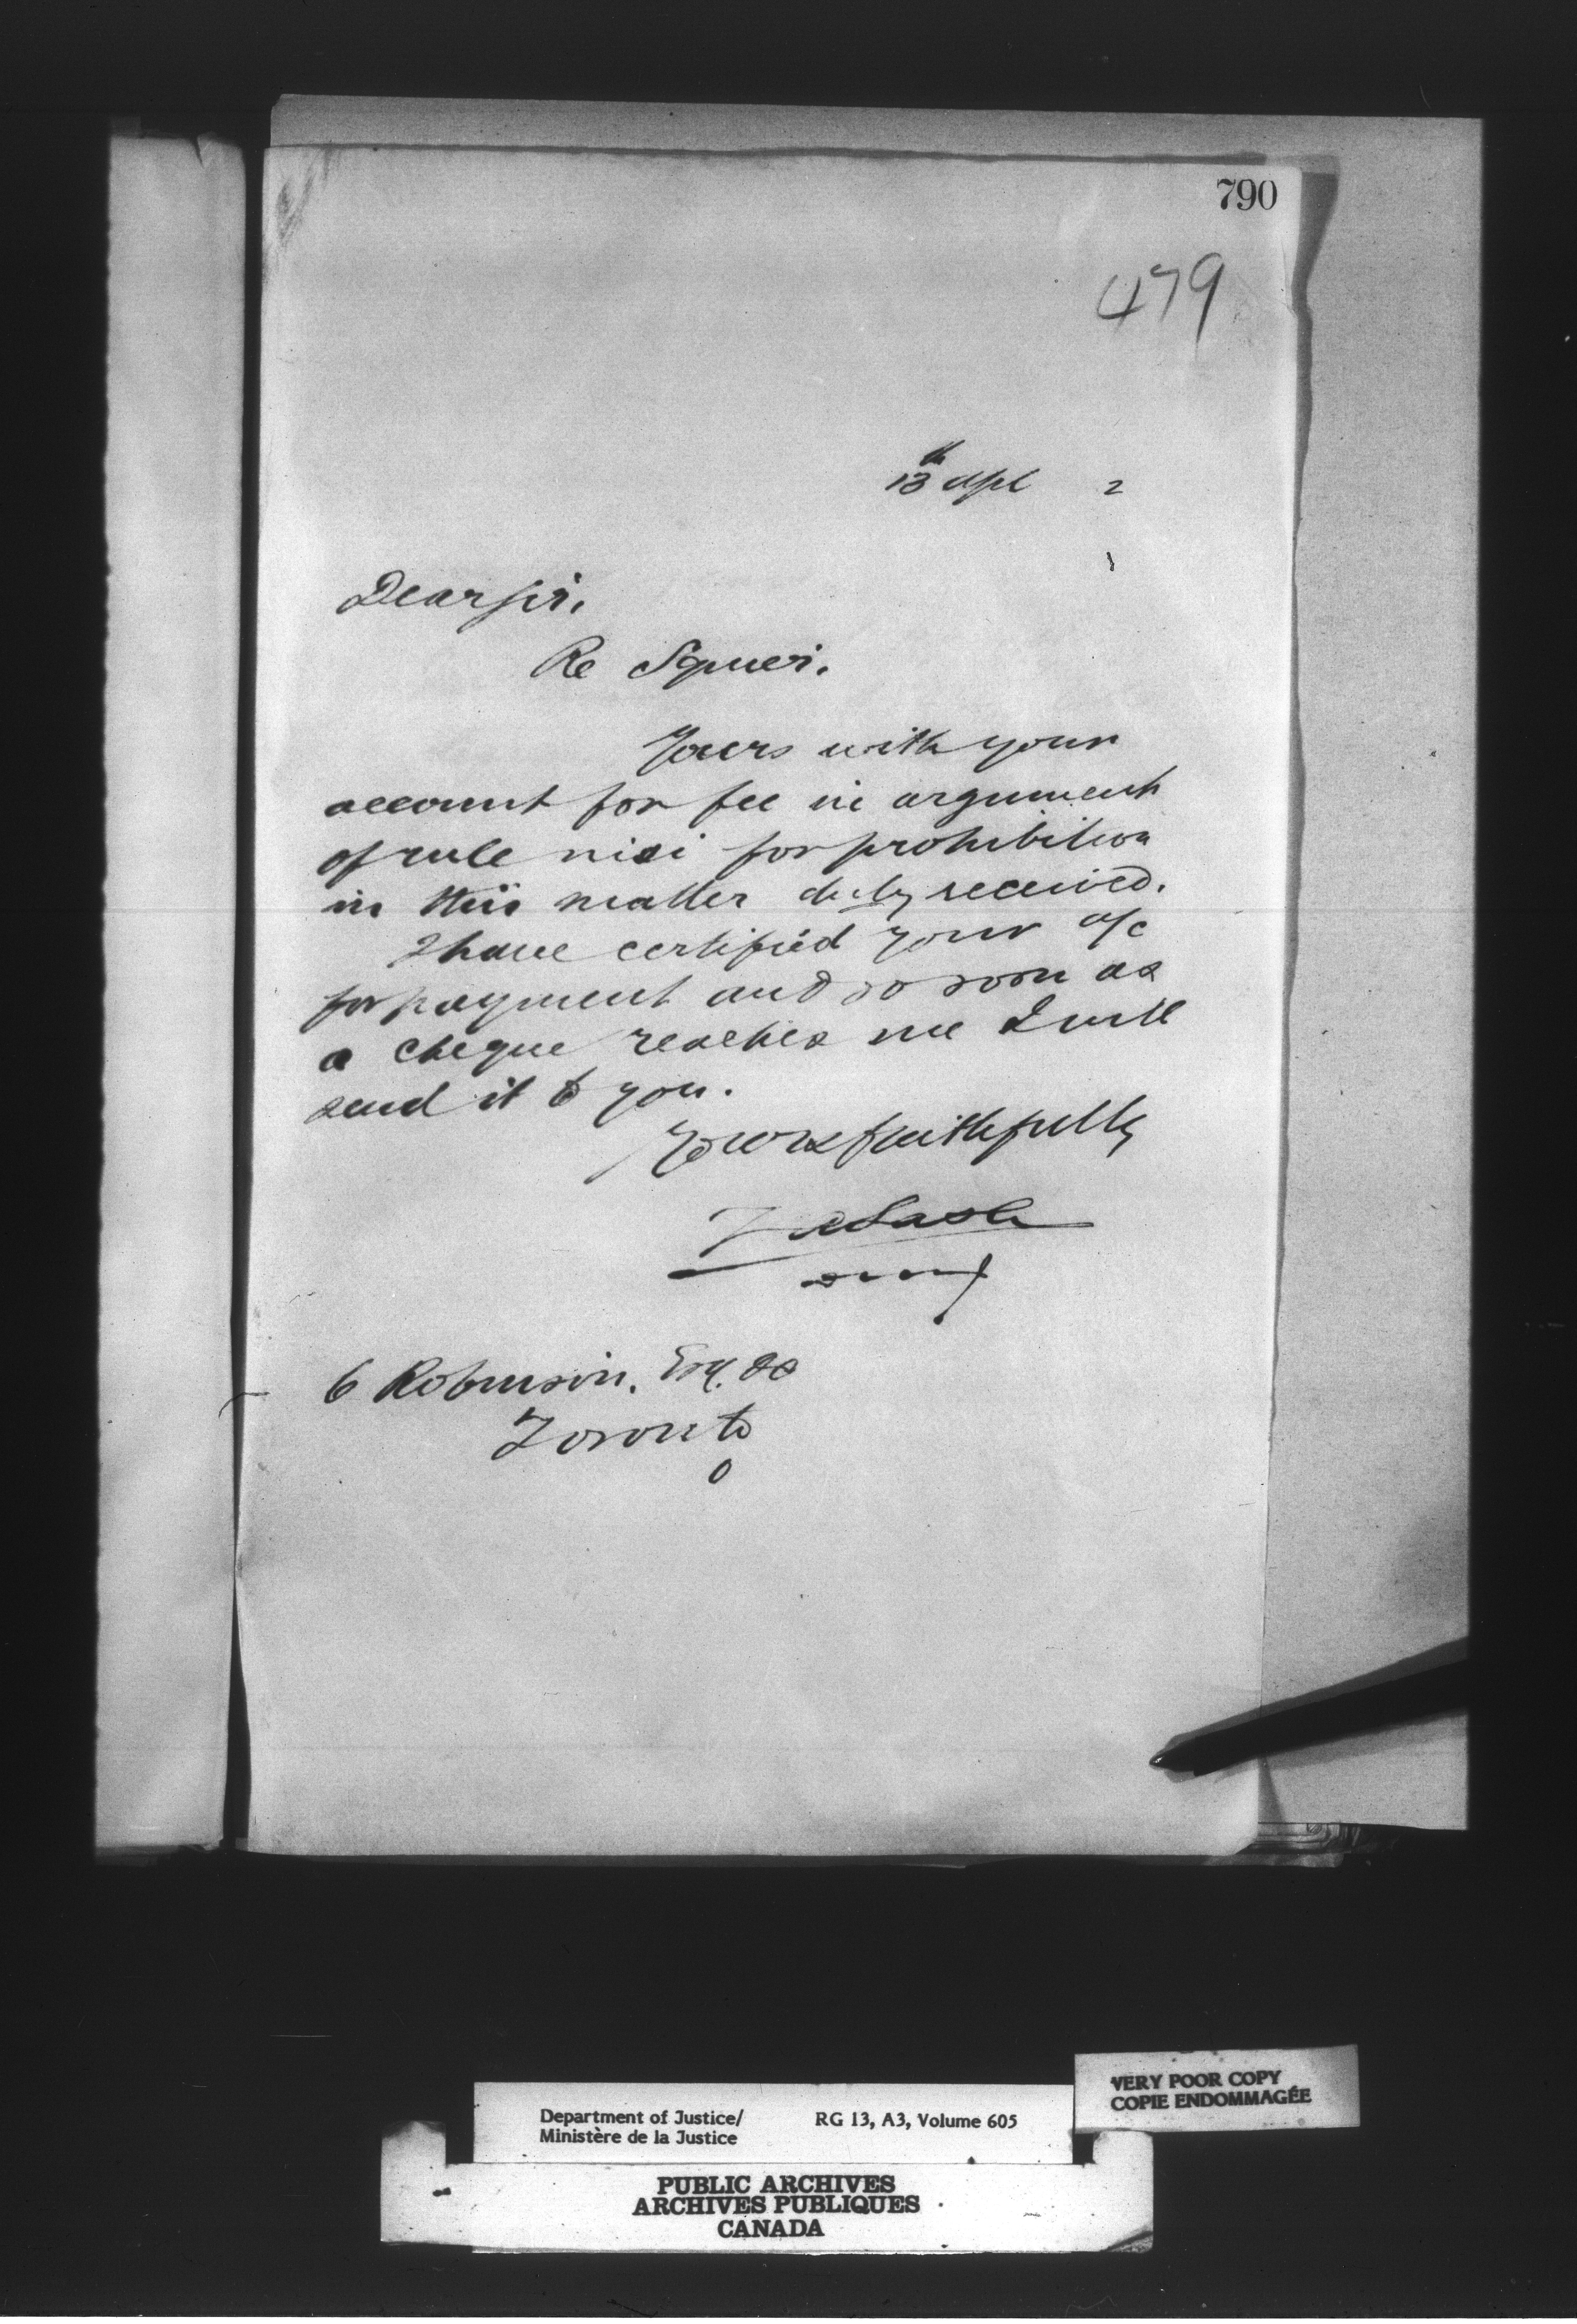 790
479
13th Apl 2
Dear Sir,
Re Squier.
Yours with your
account for fee in argument
of rule nisi for prohibition
in this matter duly received.
I have certified your a/c
for payment and so soon as
a cheque reaches me I will
send it to you.
Yours faithfully
Lash
C Robinson. Esq. QC
Toronto
O
VERY POOR COPY
COPIE ENDOMMAGÉE
Department of Justice/ RG 13, A3, Volume 605
Ministère de la Justice
PUBLIC ARCHIVES
ARCHIVES PUBLIQUES
CANADA